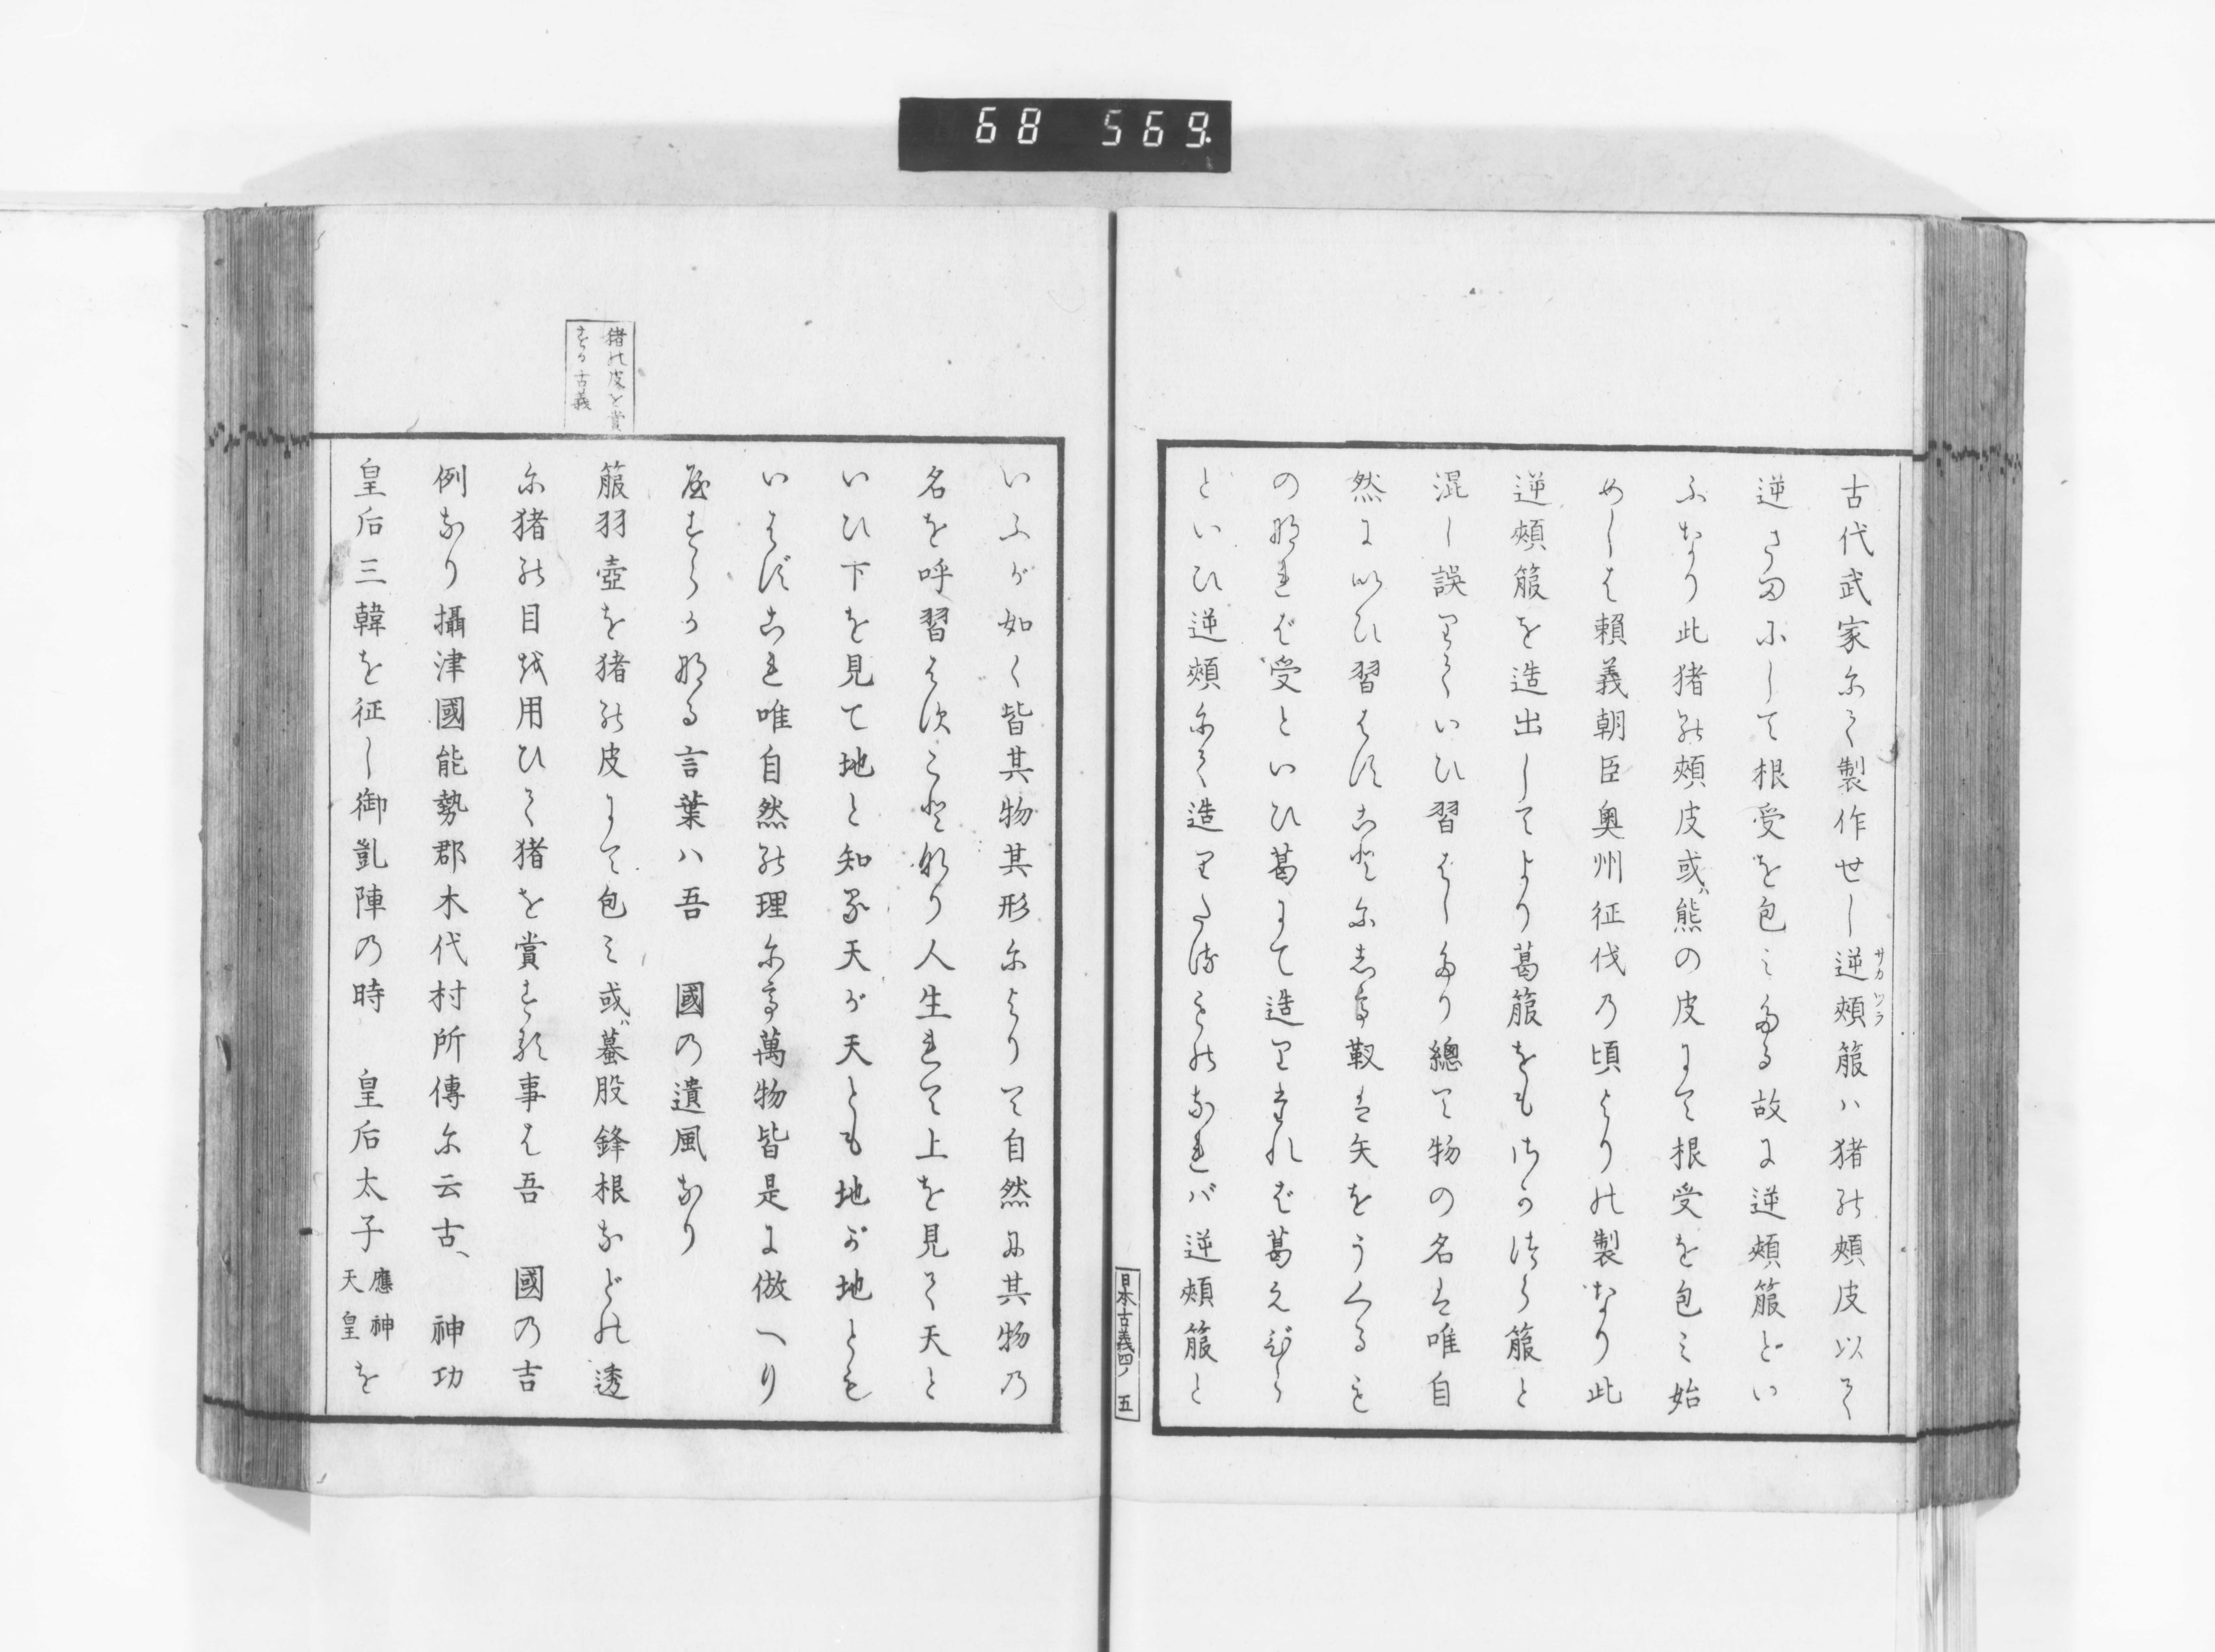 68 569
古代武家尓て製作せし逆頰箙ハ猪能頰皮以て
サカツラ
逆さ満にして根受を包ミたる故に逆頰箙とい
ふなり此猪能頰皮或ハ熊の皮にて根受を包ミ始
めしは頼義朝臣奥州征伐の頃よりの製なり此
逆頰箙を造出してより葛箙をもさかつら箙と
混し誤りていひ習はしたり總て物の名は唯自
然にいひ習はすこと尓志て靫は矢をうくるも
の那れば受といひ葛にて造りたれば葛えびら
といひ逆頰尓て造りたるもの奈れバ逆頰箙と
日本古義四ノ 五
いふが如く皆其物其形尓よりて自然に其物の
名を呼習はすこと那り人生れて上を見て天と
いひ下を見て地と知る天が天とも地が地とも
いはずこれ唯自然能理尓て萬物皆是に倣へり
屋すらか那る言葉ハ吾 國の遺風なり
猪の皮を賞
する古義
箙羽壺を猪能皮にて包ミ或ハ蟇股鋒根などの透
尓猪能目越用ひて猪を賞する事は吾 國の吉
例なり攝津國能勢郡木代村所傳尓云古、 神功
皇后三韓を征し御凱陣の時 皇后太子應神天皇を